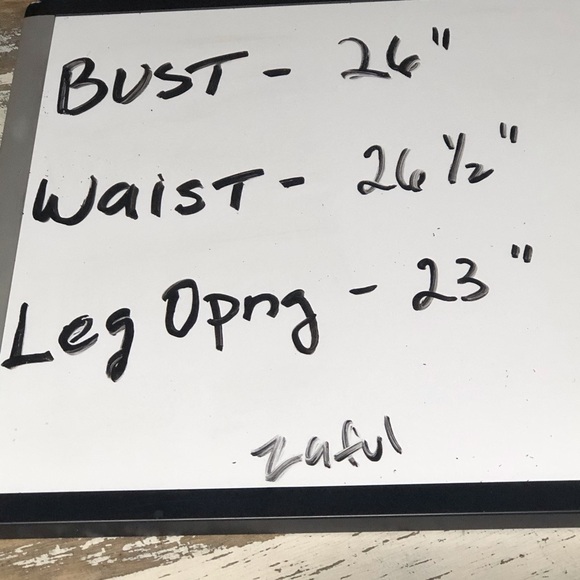 BUST - 26"
Waist - 26 1/2"
Leg Opng - 23"
Zaful